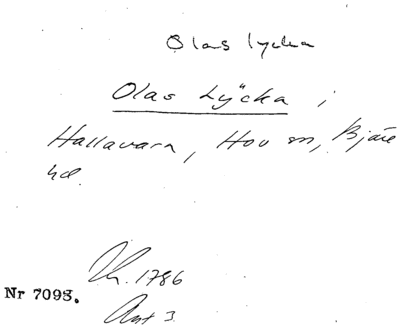 Olas lycka
Olas Lÿcka i
Hallavara, Hov sn, Bjäre
hd.
1786
Nr 7093.
Akt 3